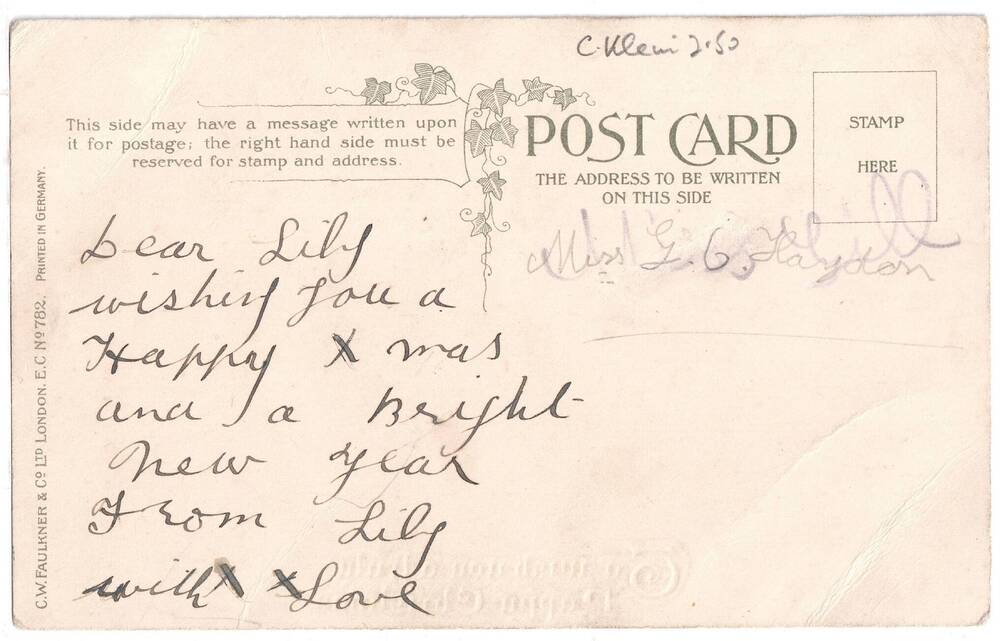 C. Klein 2.50
This side may have a message written upon
it for postage; the right hand side must be
reserved for stamp and address.
POST CARD
THE ADDRESS TO BE WRITTEN
ON THIS SIDE
STAMP
HERE
Dear Lily
wishing you a
Happy X mas
and a Bright
New Year
From Lily
with x x Love
Miss G. C. Haydon
C.W. FAULKNER & Co LTD LONDON. E.C No 782. PRINTED IN GERMANY.